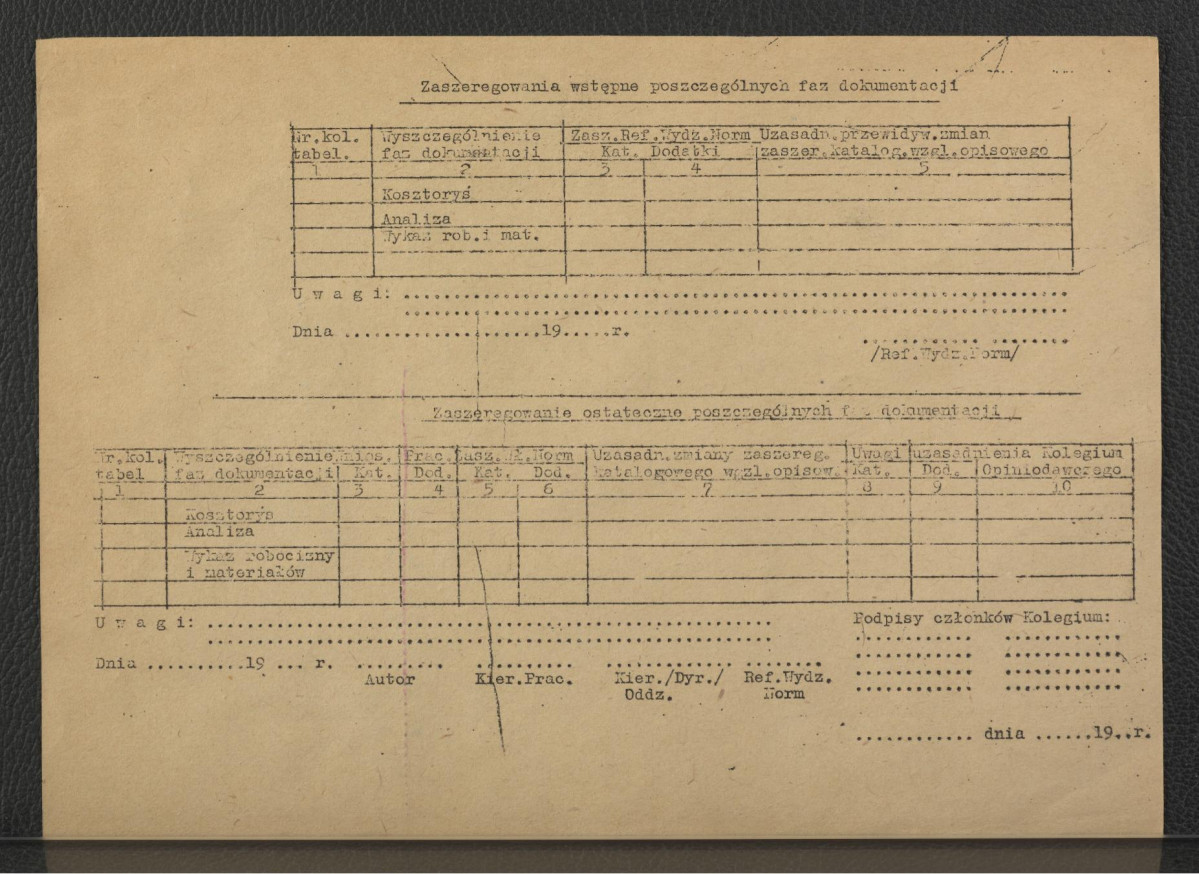 Zaszeregowania wstępne poszczególnych faz dokumentacji
Nr.kol. Wyszczególnienie Zasz.Ref.Wydz.Norm Uzasadn.przewidyw.zmian
tabel. faz dokumentacji Kat. Dodatki zaszer.katalog.wzgl.opisowego
1 2 3 4 5
Kosztorys
Analiza
Wykaz rob.i mat.
U w a g i: ................................................
................................................
Dnia ....................19.....r.
.......................
/Ref.Wydz.Norm/
Zaszeregowanie ostateczne poszczególnych faz dokumentacji
Nr.kol. Wyszczególnienie Wnios. Prac. Zasz.Wł.Norm Uzasadn.zmiany zaszereg. Uwagi uzasadnienia Kolegium
tabel faz dokumentacji Kat. Dod. Kat. Dod. katalogowego wgzl.opisow. Kat. Dod. Opiniodawczego
1 2 3 4 5 6 7 8 9 10
Kosztorys
Analiza
Wykaz robocizny
i materiałów
U w a g i: ................................................ Podpisy członków Kolegium:
................................................ ............ ............
Dnia ..........19 ... r. .......... .......... ............. ......... ............ ............
Autor Kier.Prac. Kier./Dyr./ Ref.Wydz. ............ ............
Oddz. Norm ............ ............
............ dnia ......19..r.